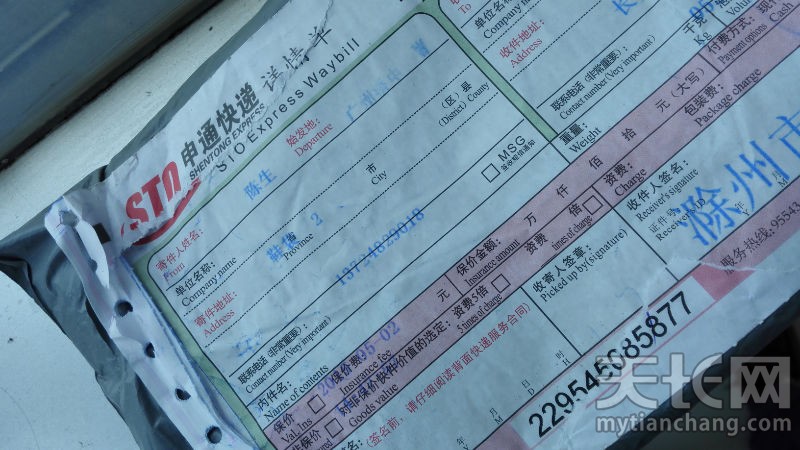 STO 申通快递
SHENTONG EXPRESS
详情单
STO Express Waybill
始发地:
Departure
广州
寄件人姓名:
From
陈生
单位名称:
Company name
寄件地址:
Address
省
Province
2
市
City
(区)县
(District) County
联系电话(非常重要):
Contact number(Very important)
MSG
内件品名:
Name of contents
保价
Val. Ins
保价费
Insurance fee
元
保价金额:
Insurance amount
万 仟 佰 拾 元(大写)
非保价
对非保价快件价值的选定:
Goods value
资费5倍
5 times of charge
资费 倍
times of charge
资费:
Charge
包装费:
Package charge
To
单位名称:
Company name
收件地址:
Address
长
联系电话(非常重要)
Contact number(Very important)
重量:
Weight
千克
Kg
Volume
付费方式:现
Payment options
Cash
收件人签名:
Receiver's signature
证件号:
Receiver's ID
滁州市
收寄人签章:
Picked up by(signature)
(签名前,请仔细阅读背面快递服务合同)
年 月 日
Y M D
服务热线:95543
229545085877
天长网
mytianchang.com